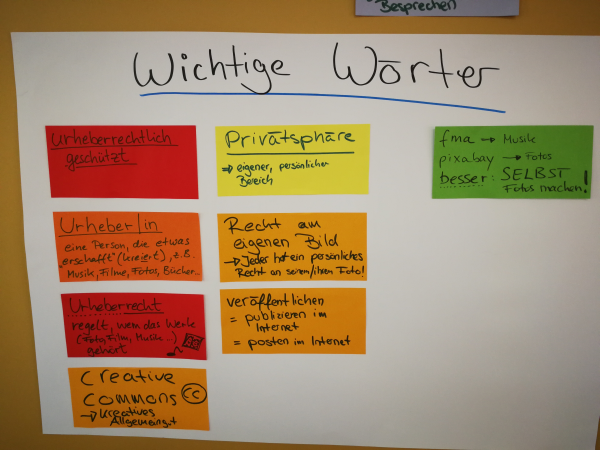 Besprechen
Wichtige Wörter
Urheberrechtlich
geschützt
Urheber/in
eine Person, die etwas
"erschafft" (kreiert), z.B.
Musik, Filme, Fotos, Bücher...
Urheberrecht
regelt, wem das Werk
(Foto, Film, Musik...)
gehört
Creative
Commons CC
→ kreatives
Allgemeingut
Privatsphäre
⇒ eigener, persönlicher
Bereich
Recht am
eigenen Bild
→ Jeder hat ein persönliches
Recht an seinem/ihrem Foto!
veröffentlichen
= publizieren im
Internet
= posten im Internet
fma → Musik
pixabay → Fotos
besser: SELBST
Fotos machen!